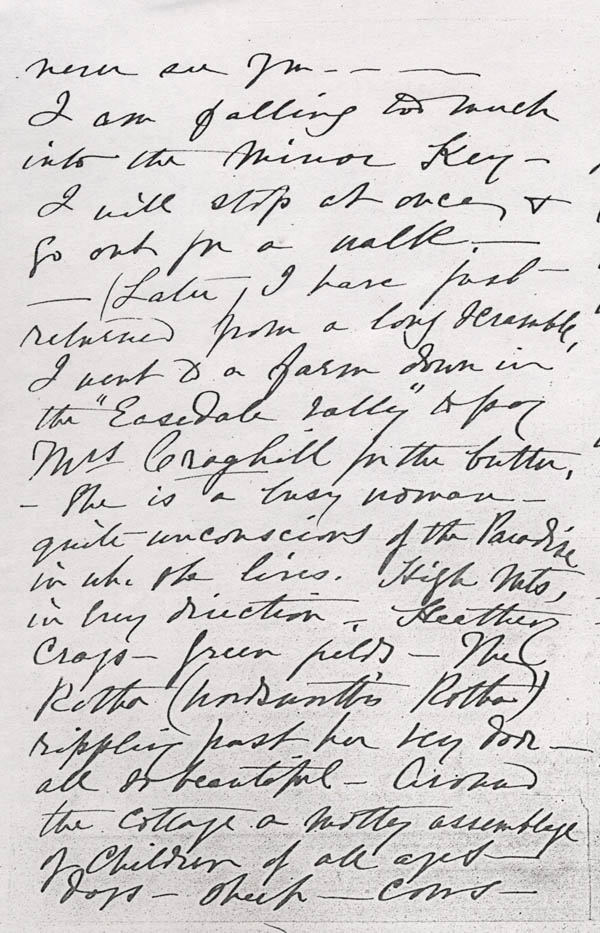 never see you — — —
I am falling too much
into the Minor Key —
I will stop at once, &
go out for a walk. —
— (Later, I have just
returned from a long scramble,
I went to a farm down in
the "Easedale valley" to pay
Mrs Craghill for the butter,
— She is a busy woman —
quite unconscious of the Paradise
in wh. she lives. High Mts,
in every direction — Heathery
Crags — green fields — The
Rotha (Wordsworth's Rotha)
rippling past her very door —
all so beautiful — Around
the cottage a motley assemblage
of Children of all ages —
Dogs — sheep — cows —